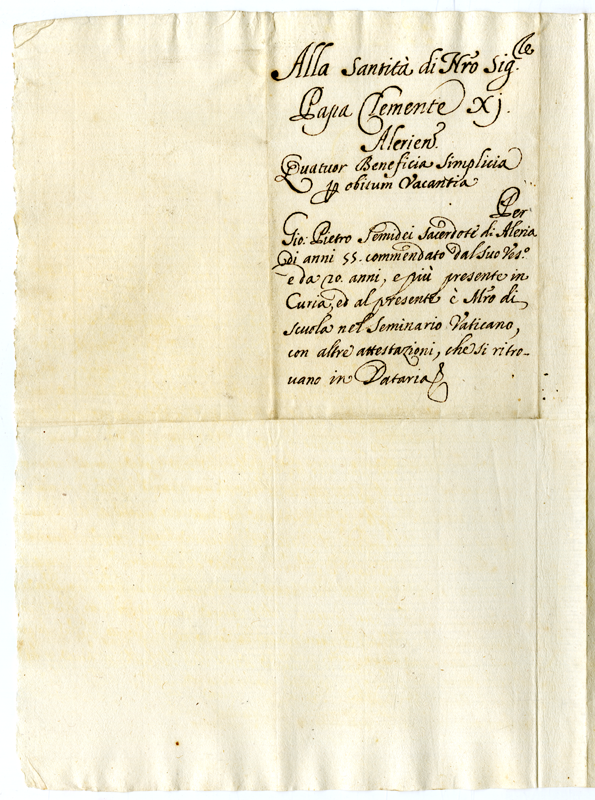 Alla Santità di Nro Sig.re
Papa Clemente XJ.
Alerien.
Quatuor Beneficia Simplicia
pp obitum Vacantia
Per
Gio: Pietro Semidei Sacerdote d'Aleria
di anni 55. commendato dal suo Ves.o
e da 20. anni, e più presente in
Curia, ed al presente è Mro di
scuola nel Seminario Vaticano,
con altre attestazioni, che si ritro-
uano in Dataria